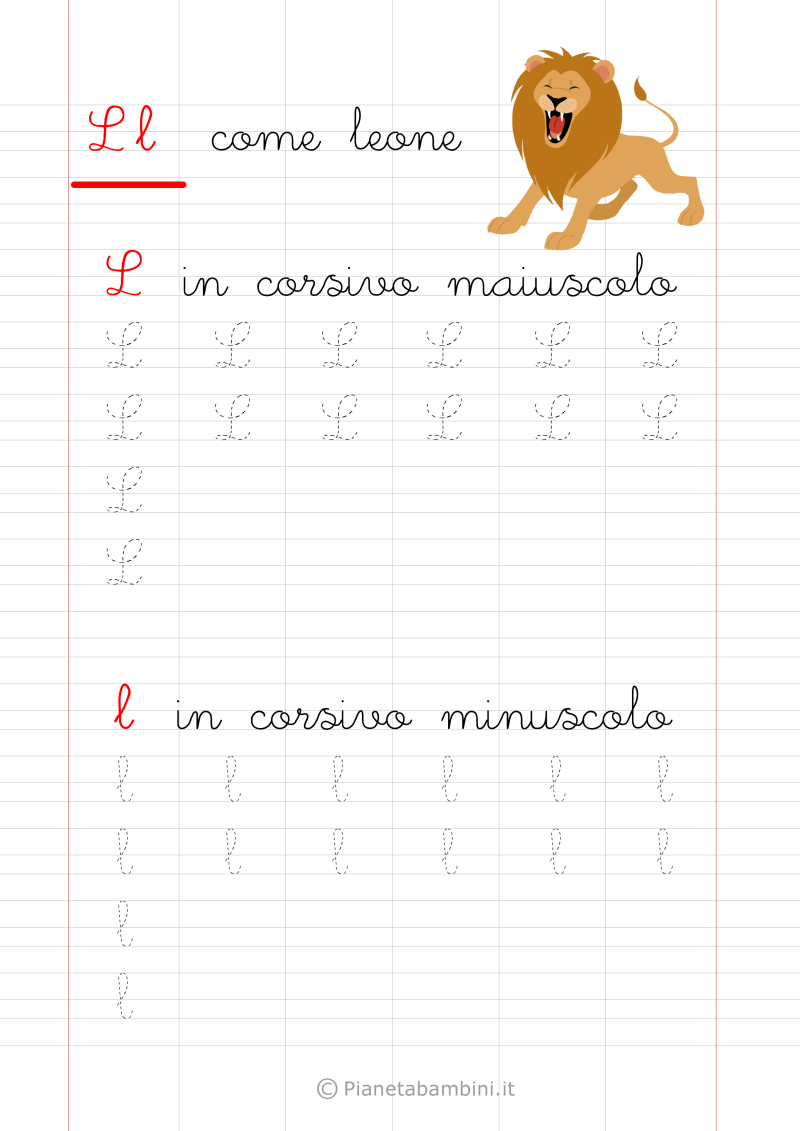 L l come leone
L in corsivo maiuscolo
L L L L L L
L L L L L L
L
L
l in corsivo minuscolo
l l l l l l
l l l l l l
l
l
© Pianetabambini.it